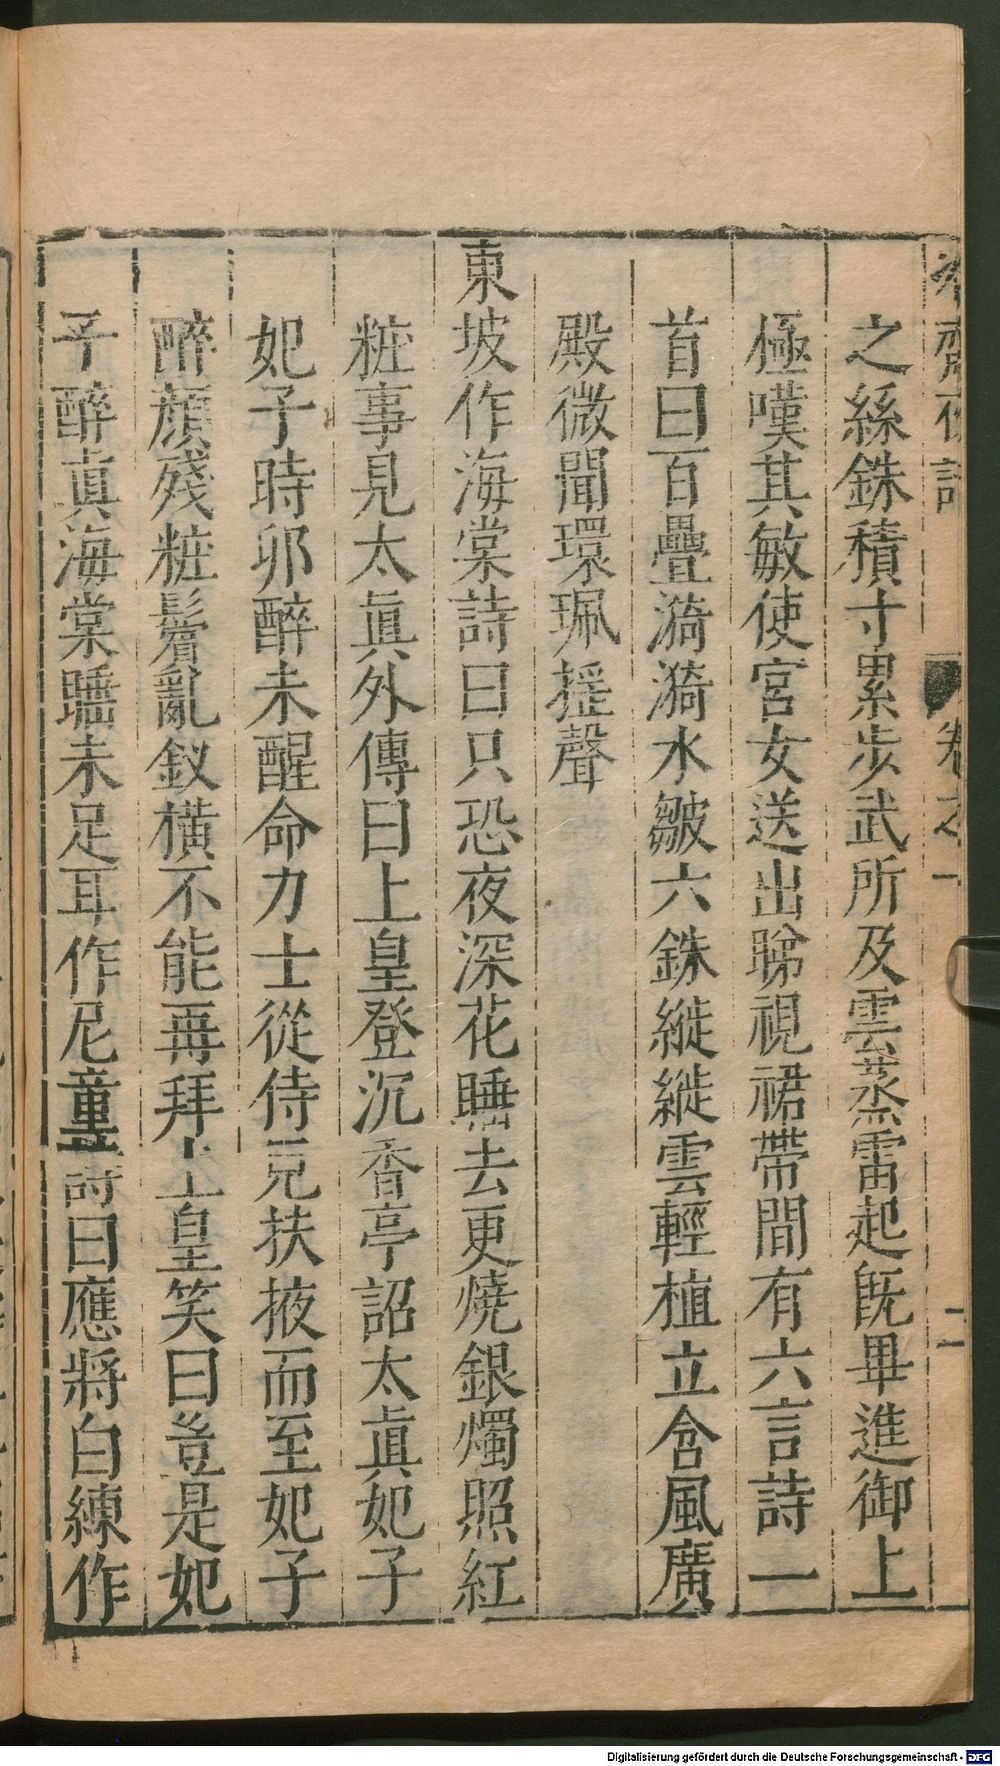 冷齋夜話 卷之一 二
之絲銖積寸累步武所及雲蒸雷起旣畢進御上
極嘆其敏使宮女送出睇視裙帶間有六言詩一
首曰百疊漪漪水皺六銖縰縰雲輕植立含風廣
殿微聞環珮搖聲
東坡作海棠詩曰只恐夜深花睡去更燒銀燭照紅
粧事見太眞外傳曰上皇登沉香亭詔太眞妃子
妃子時卯醉未醒命力士從侍兒扶掖而至妃子
醉顏殘粧鬢亂釵橫不能再拜上皇笑曰豈是妃
子醉真海棠睡未足耳作尼童詩曰應將白練作
Digitalisierung gefördert durch die Deutsche Forschungsgemeinschaft - DFG